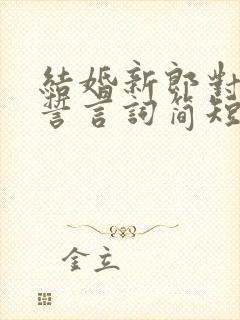 結婚新郎對
誓言詞简短
金立